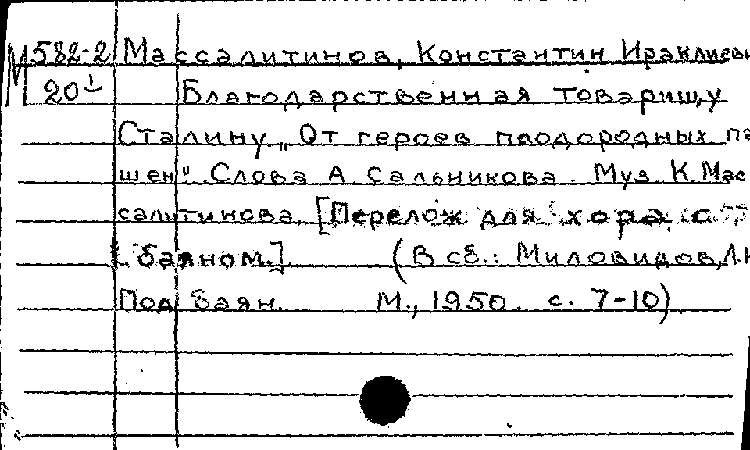 М 582-2 Массалитинов, Константин Ираклиеви
20¹ Благодарственная товарищу
Сталину „От героев плодородных па
шен". Слова А. Сальникова. Муз. К. Мас
салитинова. [Перелож. для хора с
баяном.] (В сб.: Миловидов, Л.Н
Под баян. М., 1950. с. 7-10)